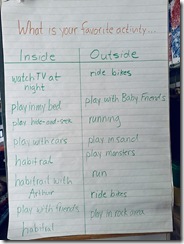 What is your favorite activity...
Inside Outside
watch TV at night ride bikes
play in my bed play with Baby Friends
play hide-and-seek running
play with cars play in sand
habitrail play monsters
habitrail with Arthur run
ride bikes
play with friends play in rock area
habitrail